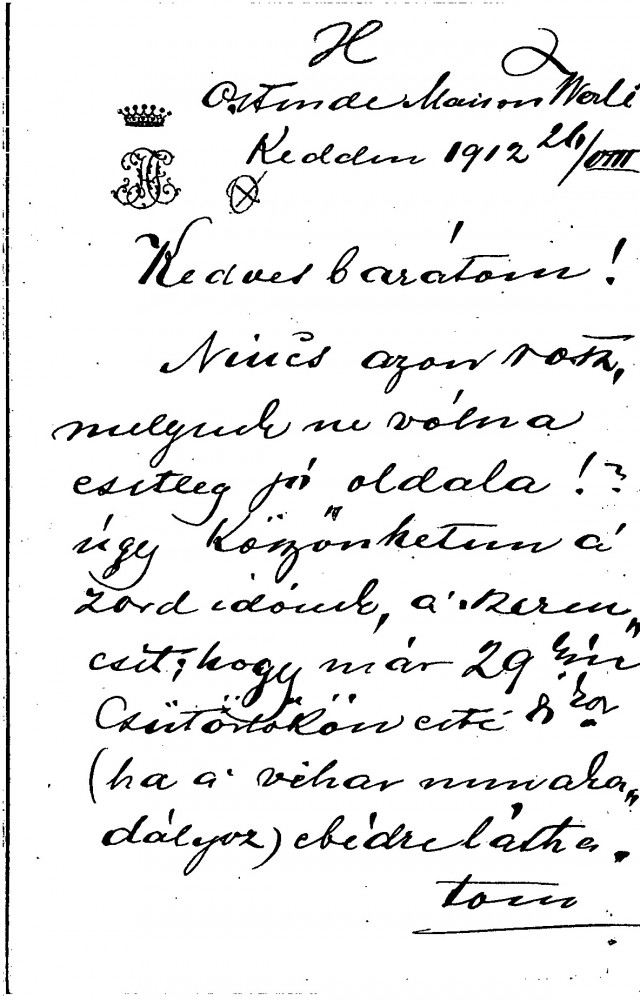 H
Ostende Maison Werli
Kedden 1912 26/VIII
Kedves barátom!
Nincs azon rossz,
melynek ne vólna
esetleg jó oldala!?
úgy köszönhetem á
zord idónek, á szeren„
csét; hogy már 29 kén
Csütörtökön esté 8 kor
(ha á vihar nem aka„
dályoz) ebédre látha.
tom